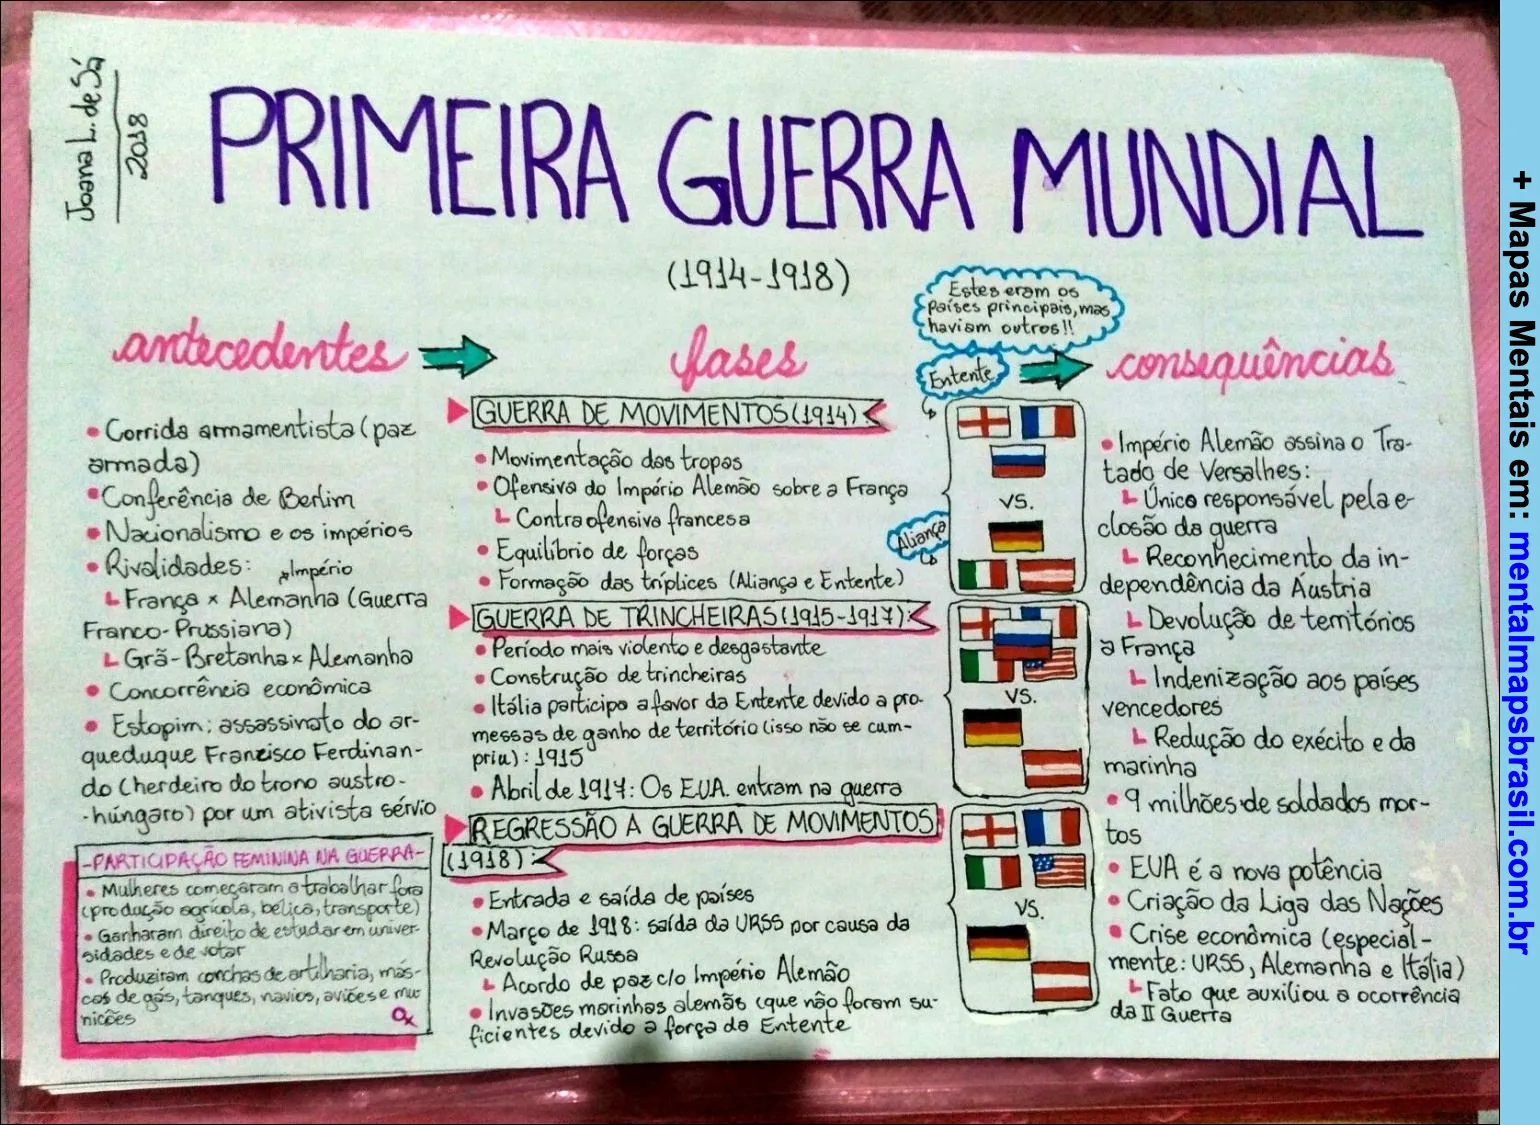 Joana L. de Sá
2018
PRIMEIRA GUERRA MUNDIAL
(1914-1918)
antecedentes
• Corrida armamentista (paz
armada)
• Conferência de Berlim
• Nacionalismo e os impérios
• Rivalidades:
Império
França x Alemanha (Guerra
Franco-Prussiana)
Grã-Bretanha x Alemanha
• Concorrência econômica
• Estopim: assassinato do ar-
queduque Francisco Ferdinan-
do (herdeiro do trono austro-
-húngaro) por um ativista sérvio
-PARTICIPAÇÃO FEMININA NA GUERRA-
• Mulheres começaram a trabalhar fora
(produção agrícola, bélica, transporte)
• Ganharam direito de estudar em univer-
sidades e de votar
• Produziram conchas de artilharia, más-
cas de gás, tanques, navios, aviões e mu
nicões
fases
GUERRA DE MOVIMENTOS (1914)
• Movimentação das tropas
• Ofensiva do Império Alemão sobre a França
Contra ofensiva francesa
• Equilíbrio de forças
• Formação das tríplices (Aliança e Entente)
GUERRA DE TRINCHEIRAS (1915-1917):
• Período mais violento e desgastante
• Construção de trincheiras
• Itália participa a favor da Entente devido a pro-
messas de ganho de território (isso não se cum-
priu): 1915
• Abril de 1917: Os EUA entram na guerra
REGRESSÃO A GUERRA DE MOVIMENTOS
(1918):
• Entrada e saída de países
• Março de 1918: saída da URSS por causa da
Revolução Russa
Acordo de paz c/o Império Alemão
• Invasões marinhas alemãs (que não foram su-
ficientes devido a força da Entente
Estes eram os
países principais, mas
haviam outros!!
Entente
VS.
Aliança
VS.
VS.
consequências
• Império Alemão assina o Tra-
tado de Versalhes:
Único responsável pela e-
closão da guerra
Reconhecimento da in-
dependência da Áustria
Devolução de territórios
a França
Indenização aos países
vencedores
Redução do exécito e da
marinha
• 9 milhões de soldados mor-
tos
• EUA é a nova potência
• Criação da Liga das Nações
• Crise econômica (especial-
mente: URSS, Alemanha e Itália)
Fato que auxiliou a ocorrência
da II Guerra
+ Mapas Mentais em: mentalmapsbrasil.com.br